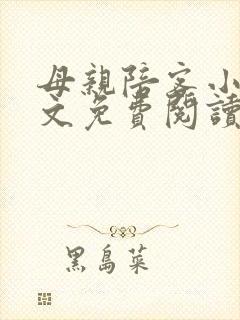 母親陪客小
文免費閱讀
黑島菜